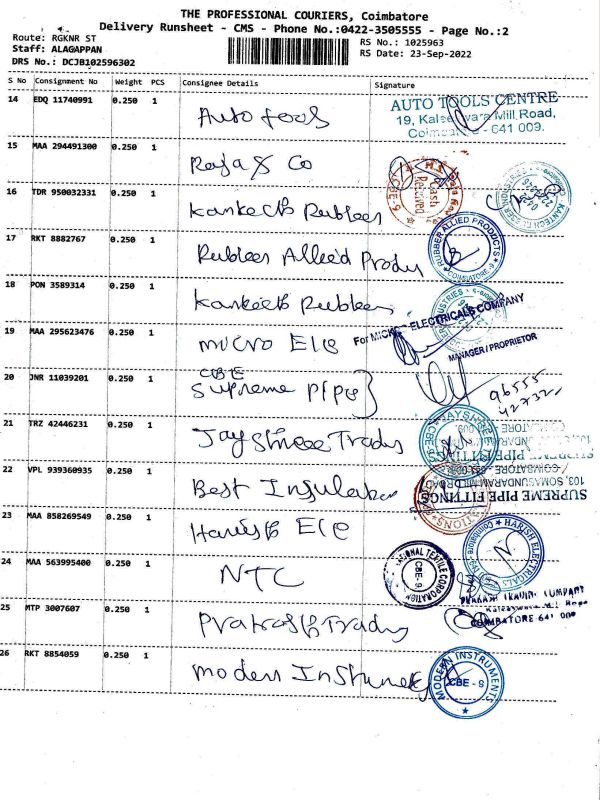 THE PROFESSIONAL COURIERS, Coimbatore
Delivery Runsheet - CMS - Phone No.:0422-3505555 - Page No.:2
Route: RGKNR ST
RS No.: 1025963
Staff: ALAGAPPAN
RS Date: 23-Sep-2022
DRS No.: DCJB102596302
S No Consignment No Weight PCS Consignee Details Signature
14 EDQ 11740991 0.250 1 Auto tools
AUTO TOOLS CENTRE
19, Kaleeswara Mill Road,
Coimbatore - 641 009.
15 MAA 294491300 0.250 1 Raja & Co
Cash Received
CBE-9
16 TDR 950032331 0.250 1
17 RKT 8882767 0.250 1 Rubber Allied Produ
RUBBER ALLIED PRODUCTS
COIMBATORE-9
18 PON 3589314 0.250 1
19 MAA 295623476 0.250 1 micro Ele
ELECTRICALS COMPANY
MANAGER/PROPRIETOR
20 JNR 11039201 0.250 1 CBE
Supreme Pipe
96555
42732
21 TRZ 42446231 0.250 1 Jayshree Tradrs
22 VPL 939360935 0.250 1 Best Insulation
SUPREME PIPE FITTINGS
103, SOMASUNDARAM MILL ROAD
COIMBATORE
23 MAA 858269549 0.250 1 Harish Ele
HARISH ELECTRICALS
Coimbatore
24 MAA 563995400 0.250 1 NTC
NATIONAL TEXTILE CORPORATION
CBE-9
25 MTP 3007607 0.250 1 Prakash Tradrs
COIMBATORE-641 009
26 RKT 8854059 0.250 1 modern Instument
MODERN INSTRUMENTS
CBE - 9